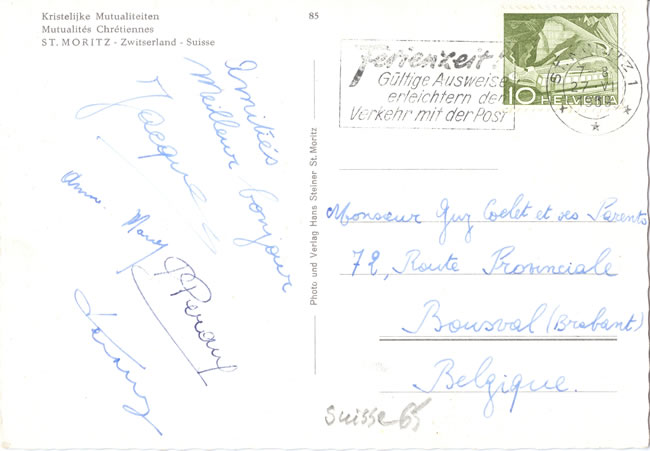 Kristelijke Mutualiteiten
Mutualités Chrétiennes
ST. MORITZ - Zwitserland - Suisse
85
Ferienzeit!
Gültige Ausweise
erleichtern den
Verkehr mit der Post
ST. MORITZ 1
10 HELVETIA
Amitiés
Meilleur bonjour
Jacques
Anne Mary
P Peraux
Photo und Verlag Hans Steiner St. Moritz
Monsieur Guy Coelet et ses Parents
72, Route Provinciale
Bousval (Brabant)
Belgique.
Suisse 65